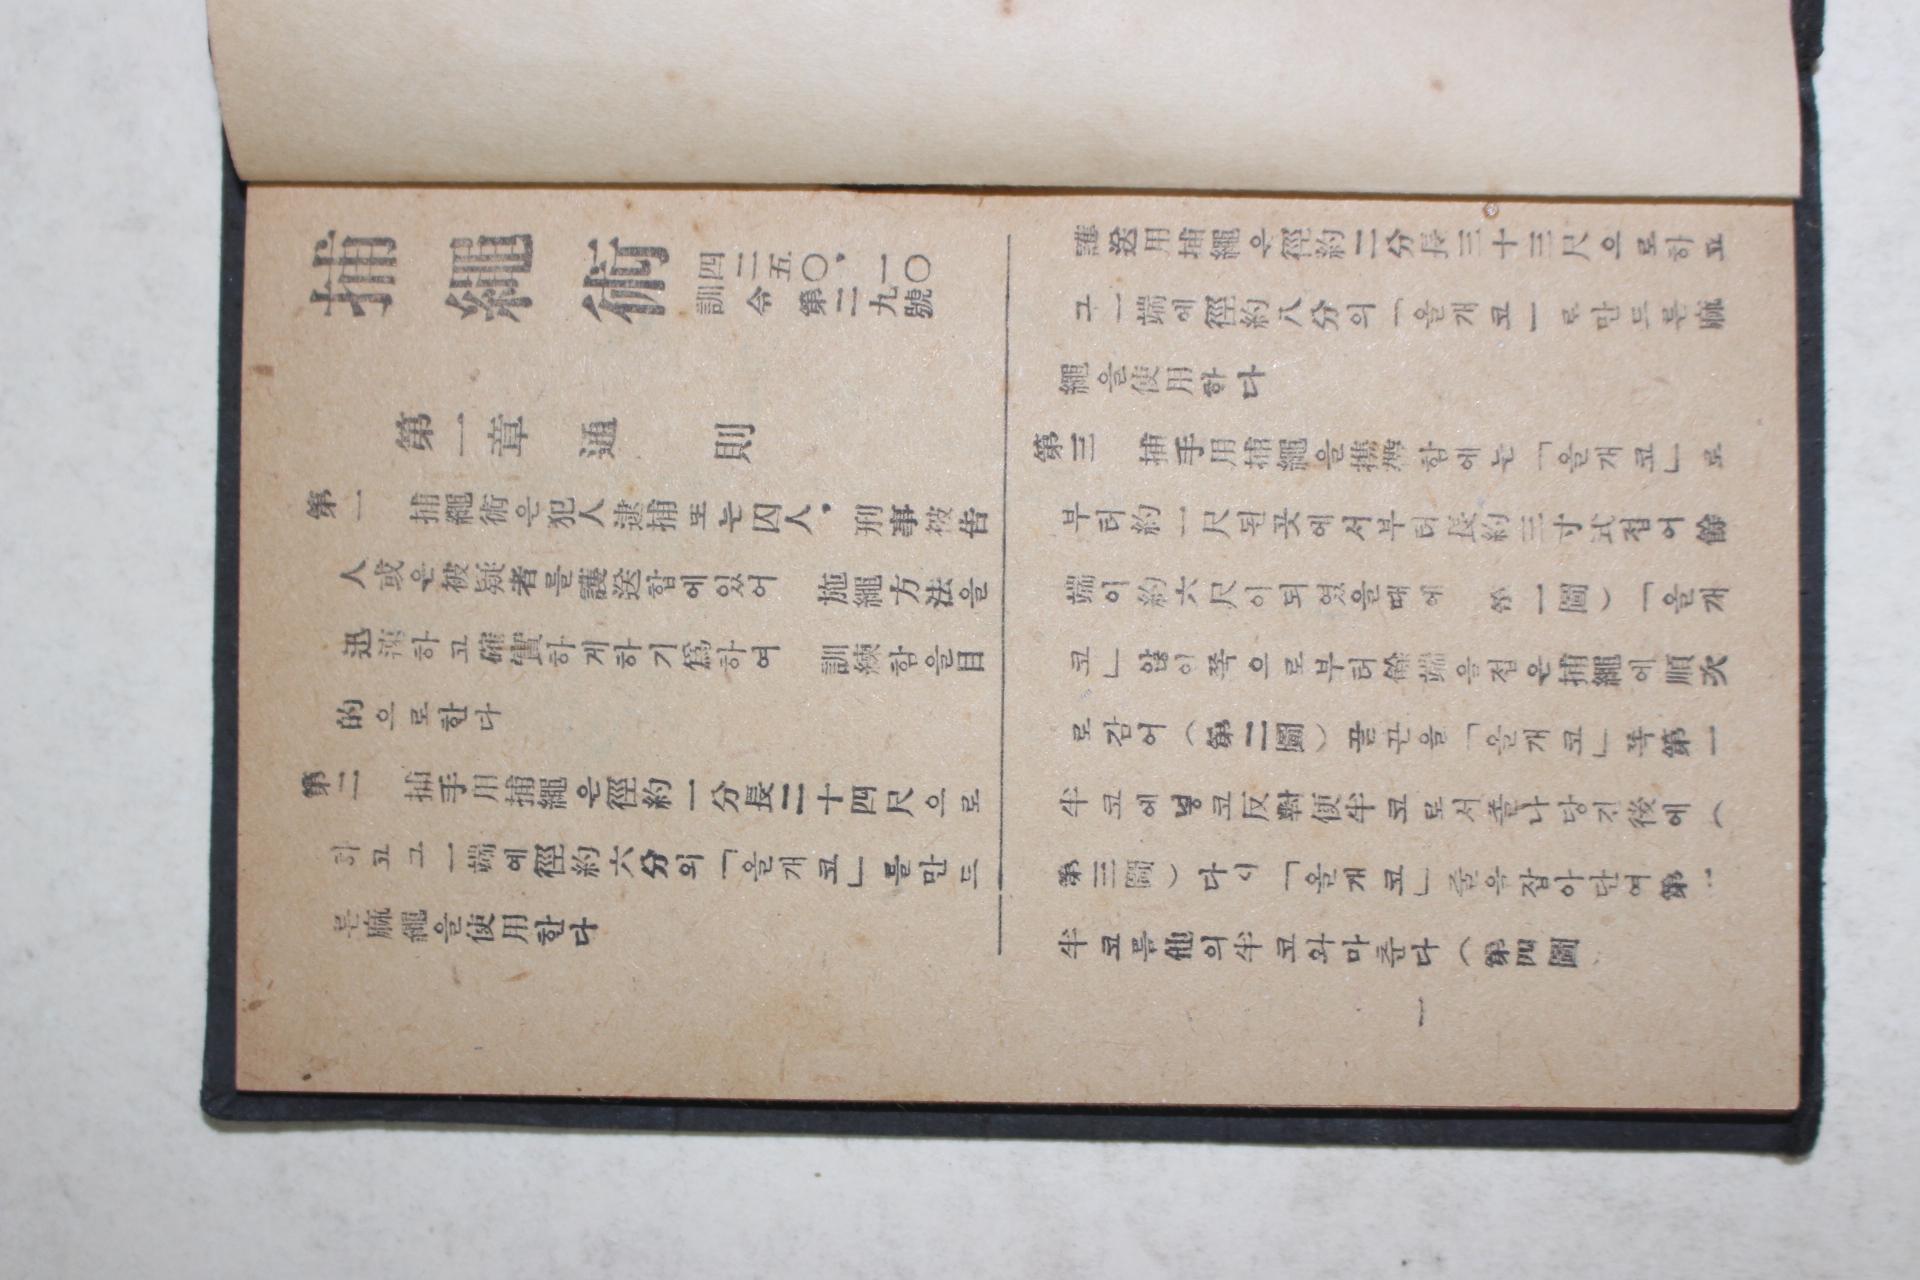 捕繩術
四二五〇,一〇
訓令第二九號
第一章 通則
第一 捕繩術은犯人逮捕또는囚人, 刑事被告
人或은被疑者를護送함에있어 施繩方法을
迅速하고確實하게하기爲하여 訓練함을目
的으로한다
第二 捕手用捕繩은徑約一分長二十四尺으로
하고그一端에徑約六分의「올개코」를만드
른麻繩을使用한다
護送用捕繩은徑約二分長三十三尺으로하고
그一端에徑約八分의「올개코」로만드른麻
繩을使用하다
第三 捕手用捕繩을携帶함에는「올개코」로
부터約一尺된곳에서부터長約三寸式접어餘
端이約六尺이되였을때에 第一圖)「올개
코」않이쪽으로부터餘端을접은捕繩에順次
로감어(第二圖)끝끈을「올개코」쪽第一
半코에넣코反對便半코로서졸나당긴後에(
第三圖)다시「올개코」줄을잡아단여第二
半코를他의半코와마춘다(第四圖
一